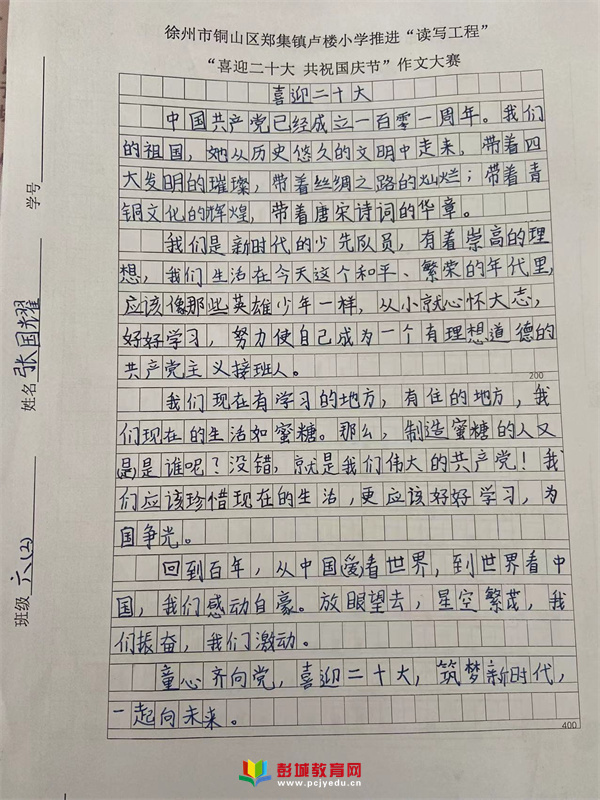 徐州市铜山区郑集镇卢楼小学推进“读写工程”
“喜迎二十大 共祝国庆节”作文大赛
喜迎二十大
中国共产党已经成立一百零一周年。我们
的祖国，她从历史悠久的文明中走来，带着四
大发明的璀璨，带着丝绸之路的灿烂；带着青
铜文化的辉煌，带着唐宋诗词的华章。
我们是新时代的少先队员，有着崇高的理
想，我们生活在今天这个和平、繁荣的年代里，
应该像那些英雄少年一样，从小就心怀大志，
好好学习，努力使自己成为一个有理想道德的
共产党主义接班人。
200
我们现在有学习的地方，有住的地方，我
们现在的生活如蜜糖。那么，制造蜜糖的人又
是是谁呢？没错，就是我们伟大的共产党！我
们应该珍惜现在的生活，更应该好好学习，为
国争光。
回到百年，从中国看世界，到世界看中
国，我们感动自豪。放眼望去，星空繁茂，我
们振奋，我们激动。
童心齐向党，喜迎二十大，筑梦新时代，
一起向未来。
400
学号
姓名 张国耀
班级 六(2)
彭城教育网
www.pcjyedu.cn